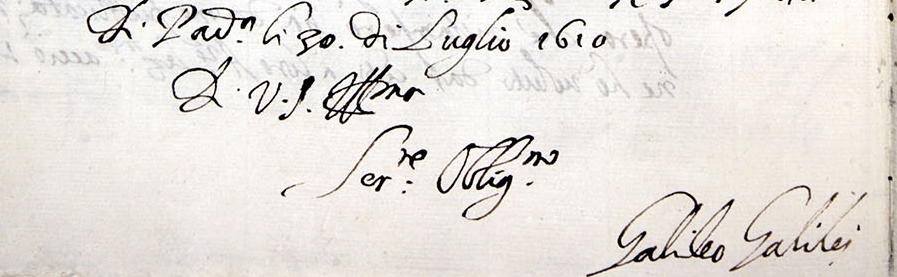 Di Pad.ª li 30. di Luglio 1610
Di V. S. Ill.ma
Ser.re Oblig.mo
Galileo Galilei